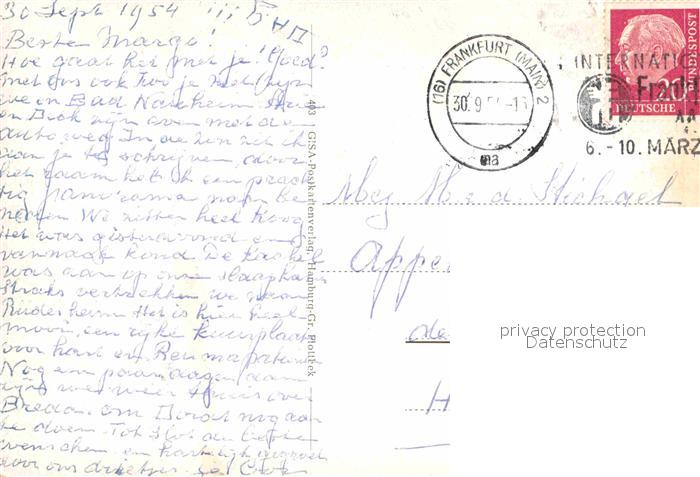 30 Sept 1954
Beste Margo!
Hoe gaat het met je! Goed?
met ons ook hoor je
we in Bad Nauheim
en zijn even met de
auto weg In de zon zit ik
aan je te schrijven, door
het raam heb ik een prach
tig panorama naar be
neden We zitten heel hoog
Het was gisteravond en
vannacht koud De kachel
was aan op onze slaapkamer
Straks vertrekken we naar
Rüdesheim Het is hier heel
mooi, een rijke kuurplaats
voor hart en Reumapatienten
Nog een paar dagen dan
zijn we weer thuis over
Breda om nog aan
te doen. Tot Slot de beste
wenschen en hartelijk gegroet
voor ons drietjes
493 GISA-Postkartenverlag, Hamburg-Gr. Flottbek
(16) FRANKFURT (MAIN) 2
30.9.54-13
ma
INTERNATIO
Fra
6.-10. MÄRZ
DEUTSCHE BUNDESPOST
20
Mej
Appe
de
H
privacy protection
Datenschutz